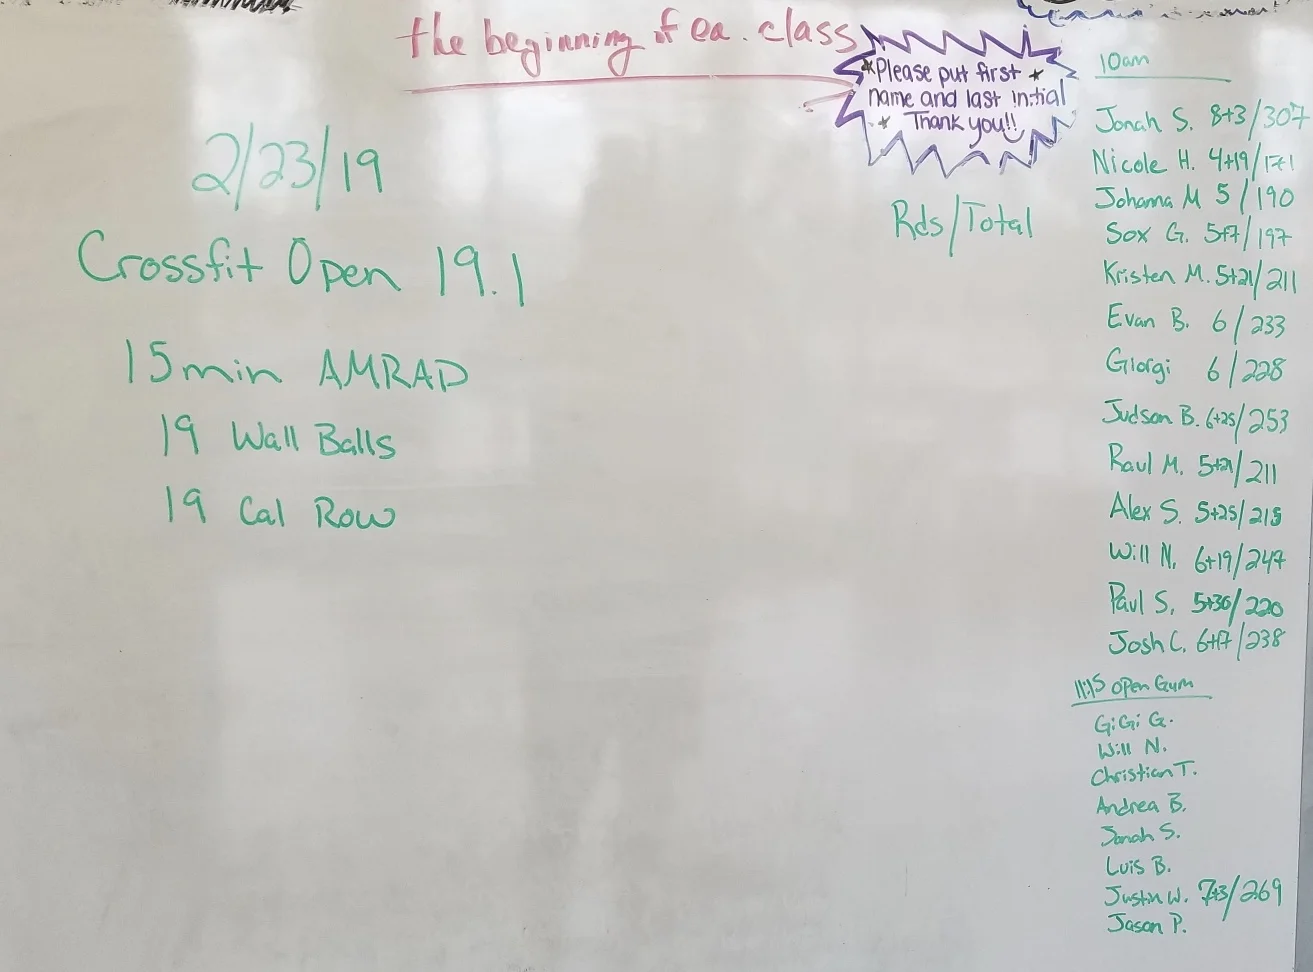 the beginning of ea. class
*Please put first *
name and last initial
* Thank you!!
2/23/19
Crossfit Open 19.1
15min AMRAP
19 Wall Balls
19 Cal Row
Rds/Total
10am
Jonah S. 8+3/307
Nicole H. 4+19/171
Johanna M 5/190
Sox G. 5+7/197
Kristen M. 5+21/211
Evan B. 6/233
Giorgi 6/228
Judson B. 6+25/253
Raul M. 5+21/211
Alex S. 5+25/215
Will N. 6+19/247
Paul S. 5+30/220
Josh C. 6+17/238
11:15 Open Gym
GiGi G.
Will N.
Christian T.
Andrea B.
Jonah S.
Luis B.
Justin W. 7+3/269
Jason P.